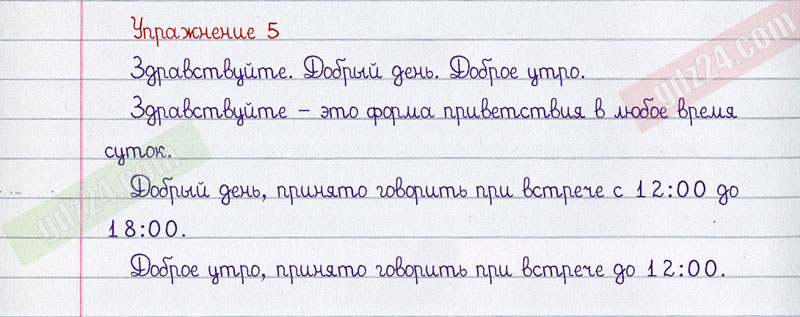 Упражнение 5
Здравствуйте. Добрый день. Доброе утро.
Здравствуйте – это форма приветствия в любое время
суток.
Добрый день, принято говорить при встрече с 12:00 до
18:00.
Доброе утро, принято говорить при встрече до 12:00.
gdz24.com
gdz24.com